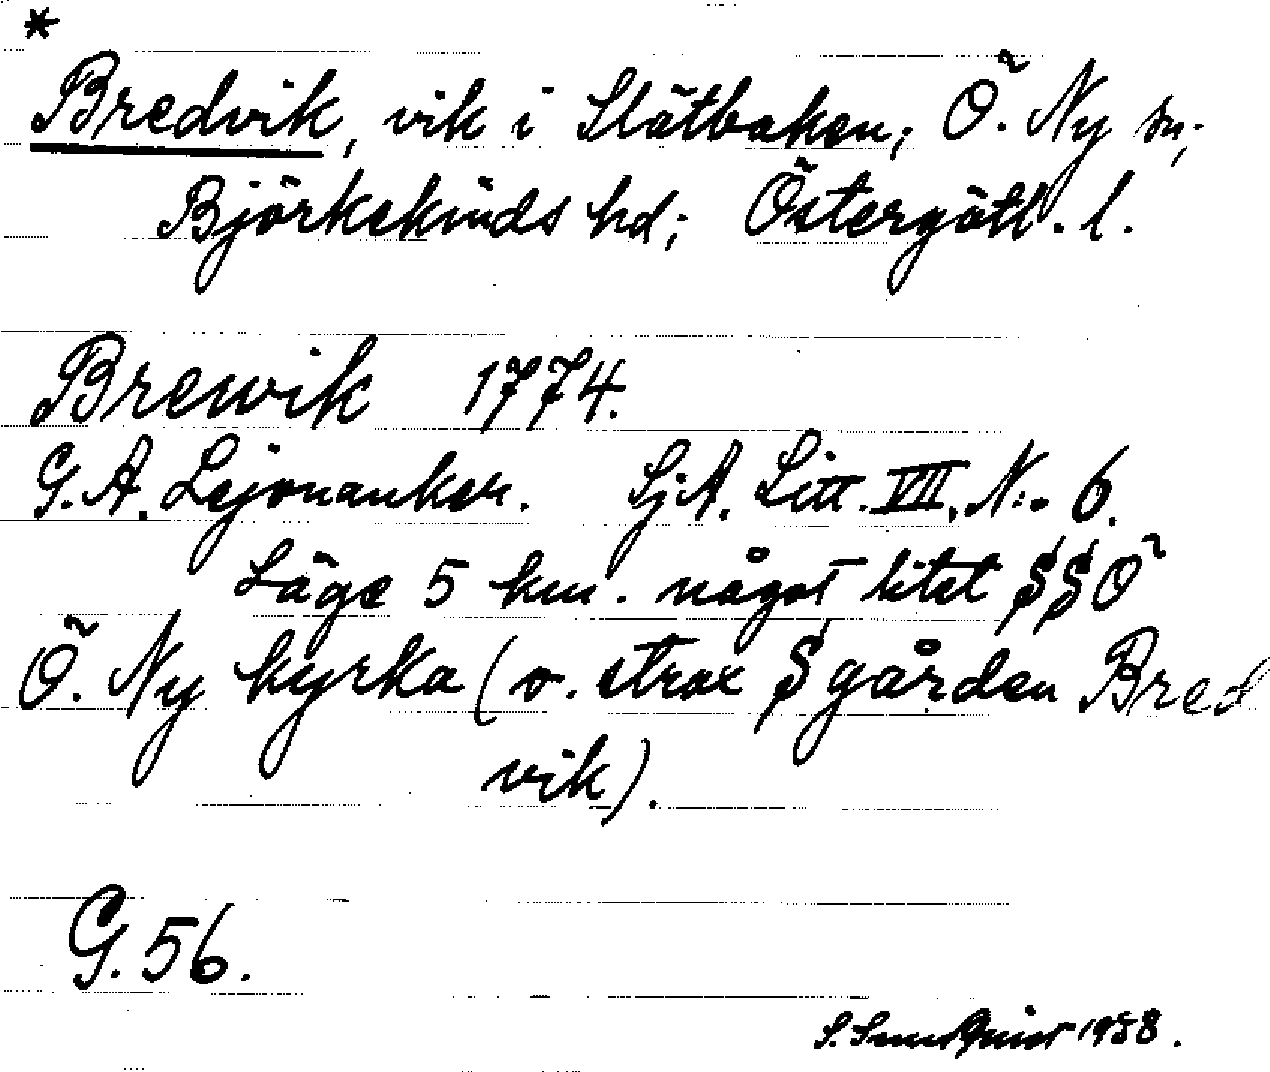 *
Bredvik, vik i Slätbaken; Ö. Ny sn;
Björkekinds hd; Östergötl. l.
Brewik 1774.
G. A. Lejonanker. Sj.A. Litt. VII. N:o 6.
Läge 5 km. något litet S S Ö
Ö. Ny kyrka (o. strax S gården Bred
vik).
G. 56.
S. Sundquist 1958.